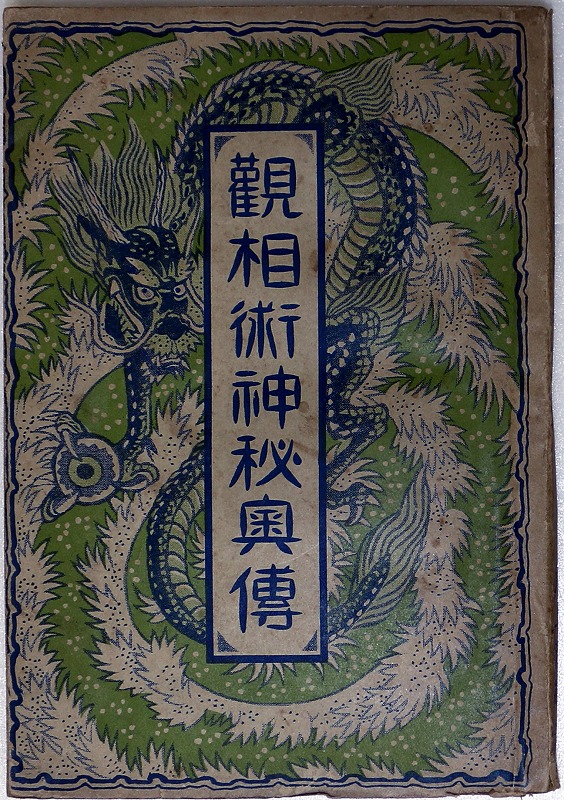 觀相術神秘奧傳